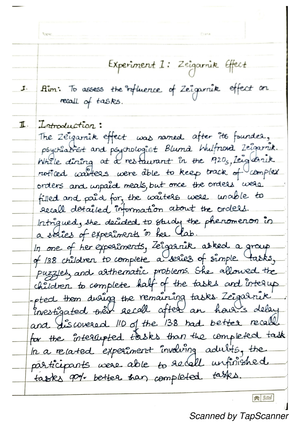 Experiment I : Zeigarnik Effect
I. Aim: To assess the influence of Zeigarnik effect on
recall of tasks.
II. Introduction :
The Zeigarnik effect was named after its founder,
psychiatrist and psychologist Bluma Wulfovna Zeigarnik.
While dining at a restaurant in the 1920s, Zeigarnik
noticed waiters were able to keep track of complex
orders and unpaid meals, but once the orders were
filled and paid for, the waiters were unable to
recall detailed information about the orders.
Intrigued, she decided to study the phenomenon in
a series of experiments in her lab.
In one of her experiments, Zeigarnik asked a group
of 138 children to complete a series of simple tasks,
puzzles, and arthematic problems. She allowed the
children to complete half of the tasks and interup
-pted them during the remaining tasks. Zeigarnik
investigated their recall after an hour's delay
and discovered 110 of the 138 had better recall
for the interrupted tasks than the completed task
In a related experiment involving adults, the
participants were able to recall unfinished
tasks 90% better than completed tasks.
Scanned by TapScanner